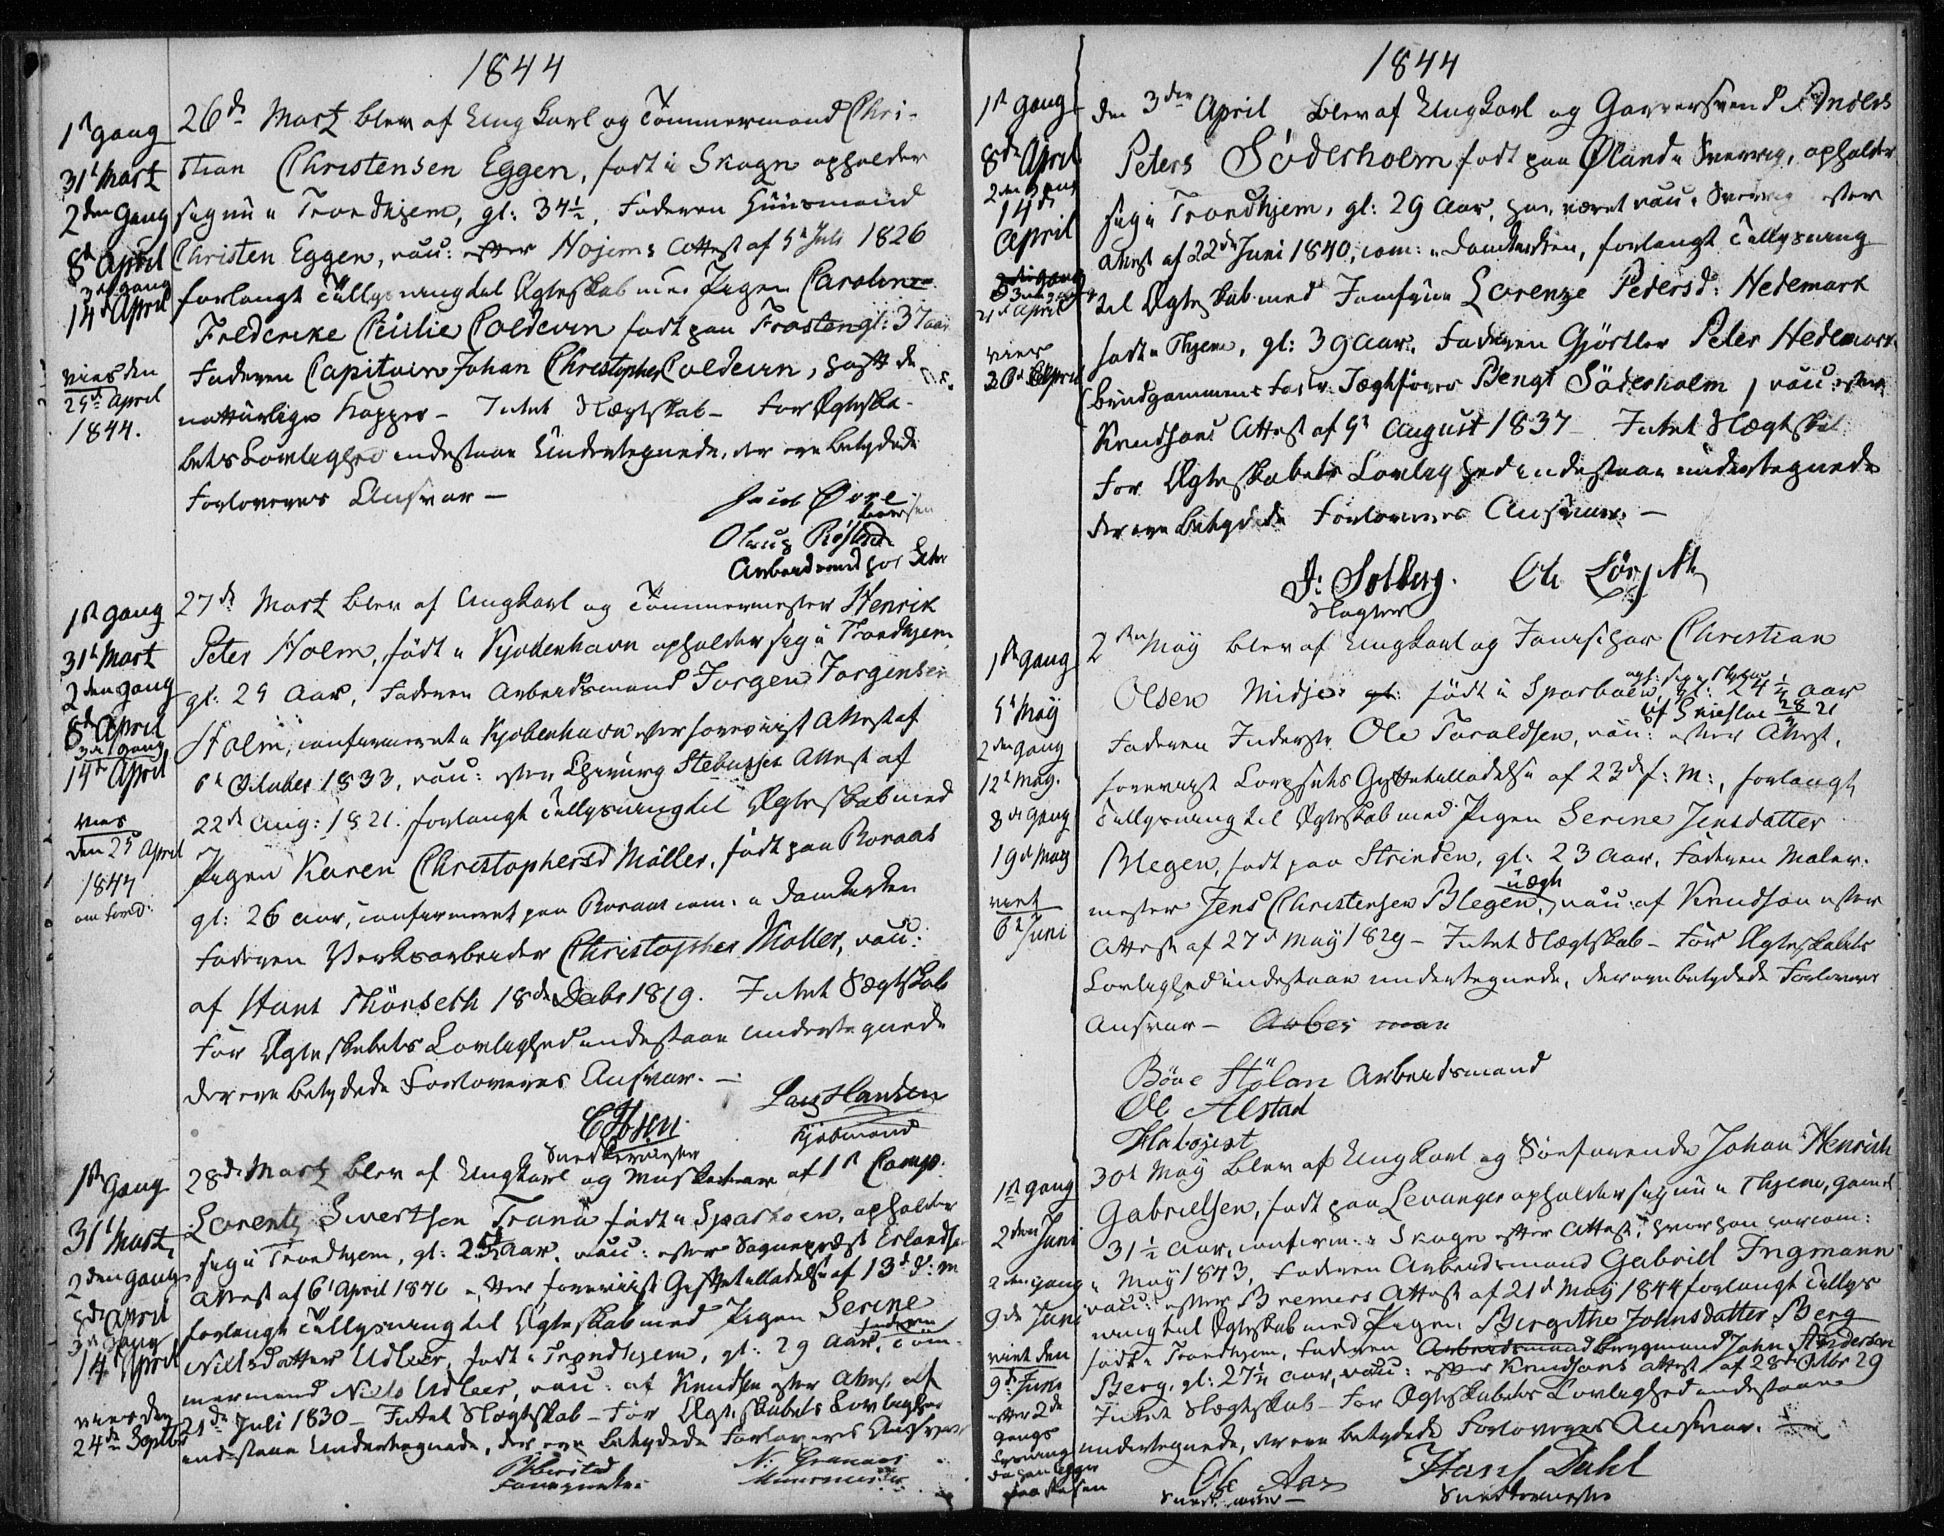 1844
1ste Gang
31te Martz
2den Gang
8de April
3die Gang
14de April
vies den
25de April
1844.
26de Martz blev af Ungkarl og Tømmermand Chri-
stian Christensen Eggen, født i Skogn opholder
sig nu i Trondhjem, gl: 34½, Faderen Huusmand
Christen Eggen, vacc: efter Hojems Attest af 5te Juli 1826
forlangt Tillysning til Ægteskab med Pigen Caroline
Frederike Cecilie Coldevin født paa Frosten gl: 37 aar
Faderen Capitain Johan Christopher Coldevin, havt de
naturlige Kopper – Intet Slægtskab – For Ægteska-
bets Lovlighed indestaae Undertegnede, der ere betydede
Forloveres Ansvar –
Jacob Øvre
Olaus Røstad
Arbeidsmand hos
1ste Gang
31te Mart
2den Gang
8de April
3die Gang
14de April
vies
den 25 April
1844
27de Martz blev af Ungkarl og Tømmermester Henrik
Peter Holm, født i Kjøbenhavn opholder sig i Trondhjem
gl: 25 Aar, Faderen Arbeidsmand Jørgen Jørgensen
Holm, confirmeret i Kjøbenhavn efter foreviist Attest af
6te Octuber 1833, vacc: efter Chirurg Attest af
22de Aug: 1821. forlangt Tillysning til Ægteskab med
Pigen Karen Christophersd Møller, født paa Roraas
gl: 26 aar, confirmeret paa Roraas com: i Domkirken
Faderen Verksarbeider Christopher Møller, vacc:
af Hans Thönseth 18de Decbr 1819. Intet Slægtskab
For Ægteskabets Lovlighed indestaae Undertegnede
der ere betydede Forloveres Ansvar. –
E Ibsen
Snedkermester
Lars Hansen
Kjøbmand
1ste Gang
31te Mart
2den Gang
8de April
3die Gang
14 April
vies den
24de Septbr
28de Martz blev af Ungkarl og Musketeer af 1ste Comp.
Lorentz Sivertsen Tranå født i Sparboen, opholder
sig i Trondhjem, gl: 25 Aar, vacc: efter Sognepræst Erlandsens
Attest af 6te April 18 efter foreviist Giftetilladelse af 13de d: M
forlangt Tillysning til Ægteskab med Pigen Serine
Nielsdatter Udleer, født i Trondhjem, gl: 29 Aar, Faderen Tøm-
mermand Niels Udleer, vacc: af Knudson efter Attest af
21de Juli 1830 – Intet Slægtskab – For Ægteskabets Lovlighed
indestaae Undertegnede, der ere betydede Forloveres Ansvar
N: Granaas
Muurmester
1844
1ste Gang
8de April
2den Gang
14de
April
3die Gang
21de April
vies
30te April
den 3die April blev af Ungkarl og Garversvend Andr
Peters Söderholm født paa Øland i Sverrig, opholder
sig i Trondhjem, gl: 29 Aar, har været vacc: i Sverrig efter
Attest af 22de Juni 1840, com: i Domkirken, forlangt Tillysning
til Ægteskab med Jomfrue Lorenze Pedersd: Hedemark
født i Thjem, gl: 39 aar, Faderen Gjørtler Peter Hedemark
Brudgommens Fader Bengt Söderholm, vacc: efter
Knudsons Attest af 9de August 1837 – Intet Slægtskab
For Ægteskabets Lovlighed indestaae undertegnede
der ere betydede Forloveres Ansvar. –
J: Solberg.
Slagter
Ole
1ste Gang
5te Maÿ
2den Gang
12te Maÿ.
3die Gang
19de Maÿ
viet
6te Juni
2den Maÿ blev af Ungkarl og Christian
Olsen Midjo født i Sparboen, gl: 24½ aar
Faderen Inderste Ole Toraldsen, vacc: efter Attest,
foreviist Corpsets Giftetilladelse af 23de f: M:, forlangt
Tillysning til Ægteskab med Pigen Serine Jensdatter
Blegen, født paa Strinden, gl: 23 aar, Faderen Maler-
mester Jens Christensen Blegen, uægte vacc: af Knudson efter
Attest af 27de Maÿ 1829 – Intet Slægtskab – For Ægteskabets
Lovlighed indestaae undertegnede, der ere betydede Forloveres
Ansvar –
Arbeidsmand
Ole Alstad
1ste Gang
2den Juni
2den Gang
9de Juni
viet den
9de Juni
efter 2den
Gangs
Lysning
da han ligger
paa Reisen
30te Maÿ blev af Ungkarl og Søefarende Johan Henrich
Gabrielsen, født paa Levanger opholder sig nu i Thjem, gamel
31½ Aar, confirm: i Skogn efter Attest, hvor han har com:
i Maÿ 1843, Faderen Arbeidsmand Gabriell Ingmann
vacc: efter Bremers Attest af 21de Maÿ 1844 forlangt Tillys-
ning til Ægteskab med Pigen Birgithe Johnsdatter Berg
født i Trondhjem, Faderen Arbeidsmand Brygmand John Andersen
Berg, gl: 27½ aar, vacc: efter Knudsons Attest af 28de Octbr 29
Intet Slægtskab – For Ægteskabets Lovlighed indestaae
undertegnede, der ere betydede Forloveres Ansvar.
Ole Aas
Hans Dahl
Snedkermester